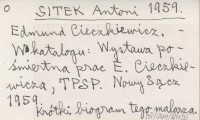 SITEK Antoni 1959.
Edmund Cieczkiewicz. -
W katalogu: Wystawa po-
śmiertna prac E. Cieczkie-
wicza, TPSP. Nowy Sącz
1959,
Krótki biogram tego malarza.